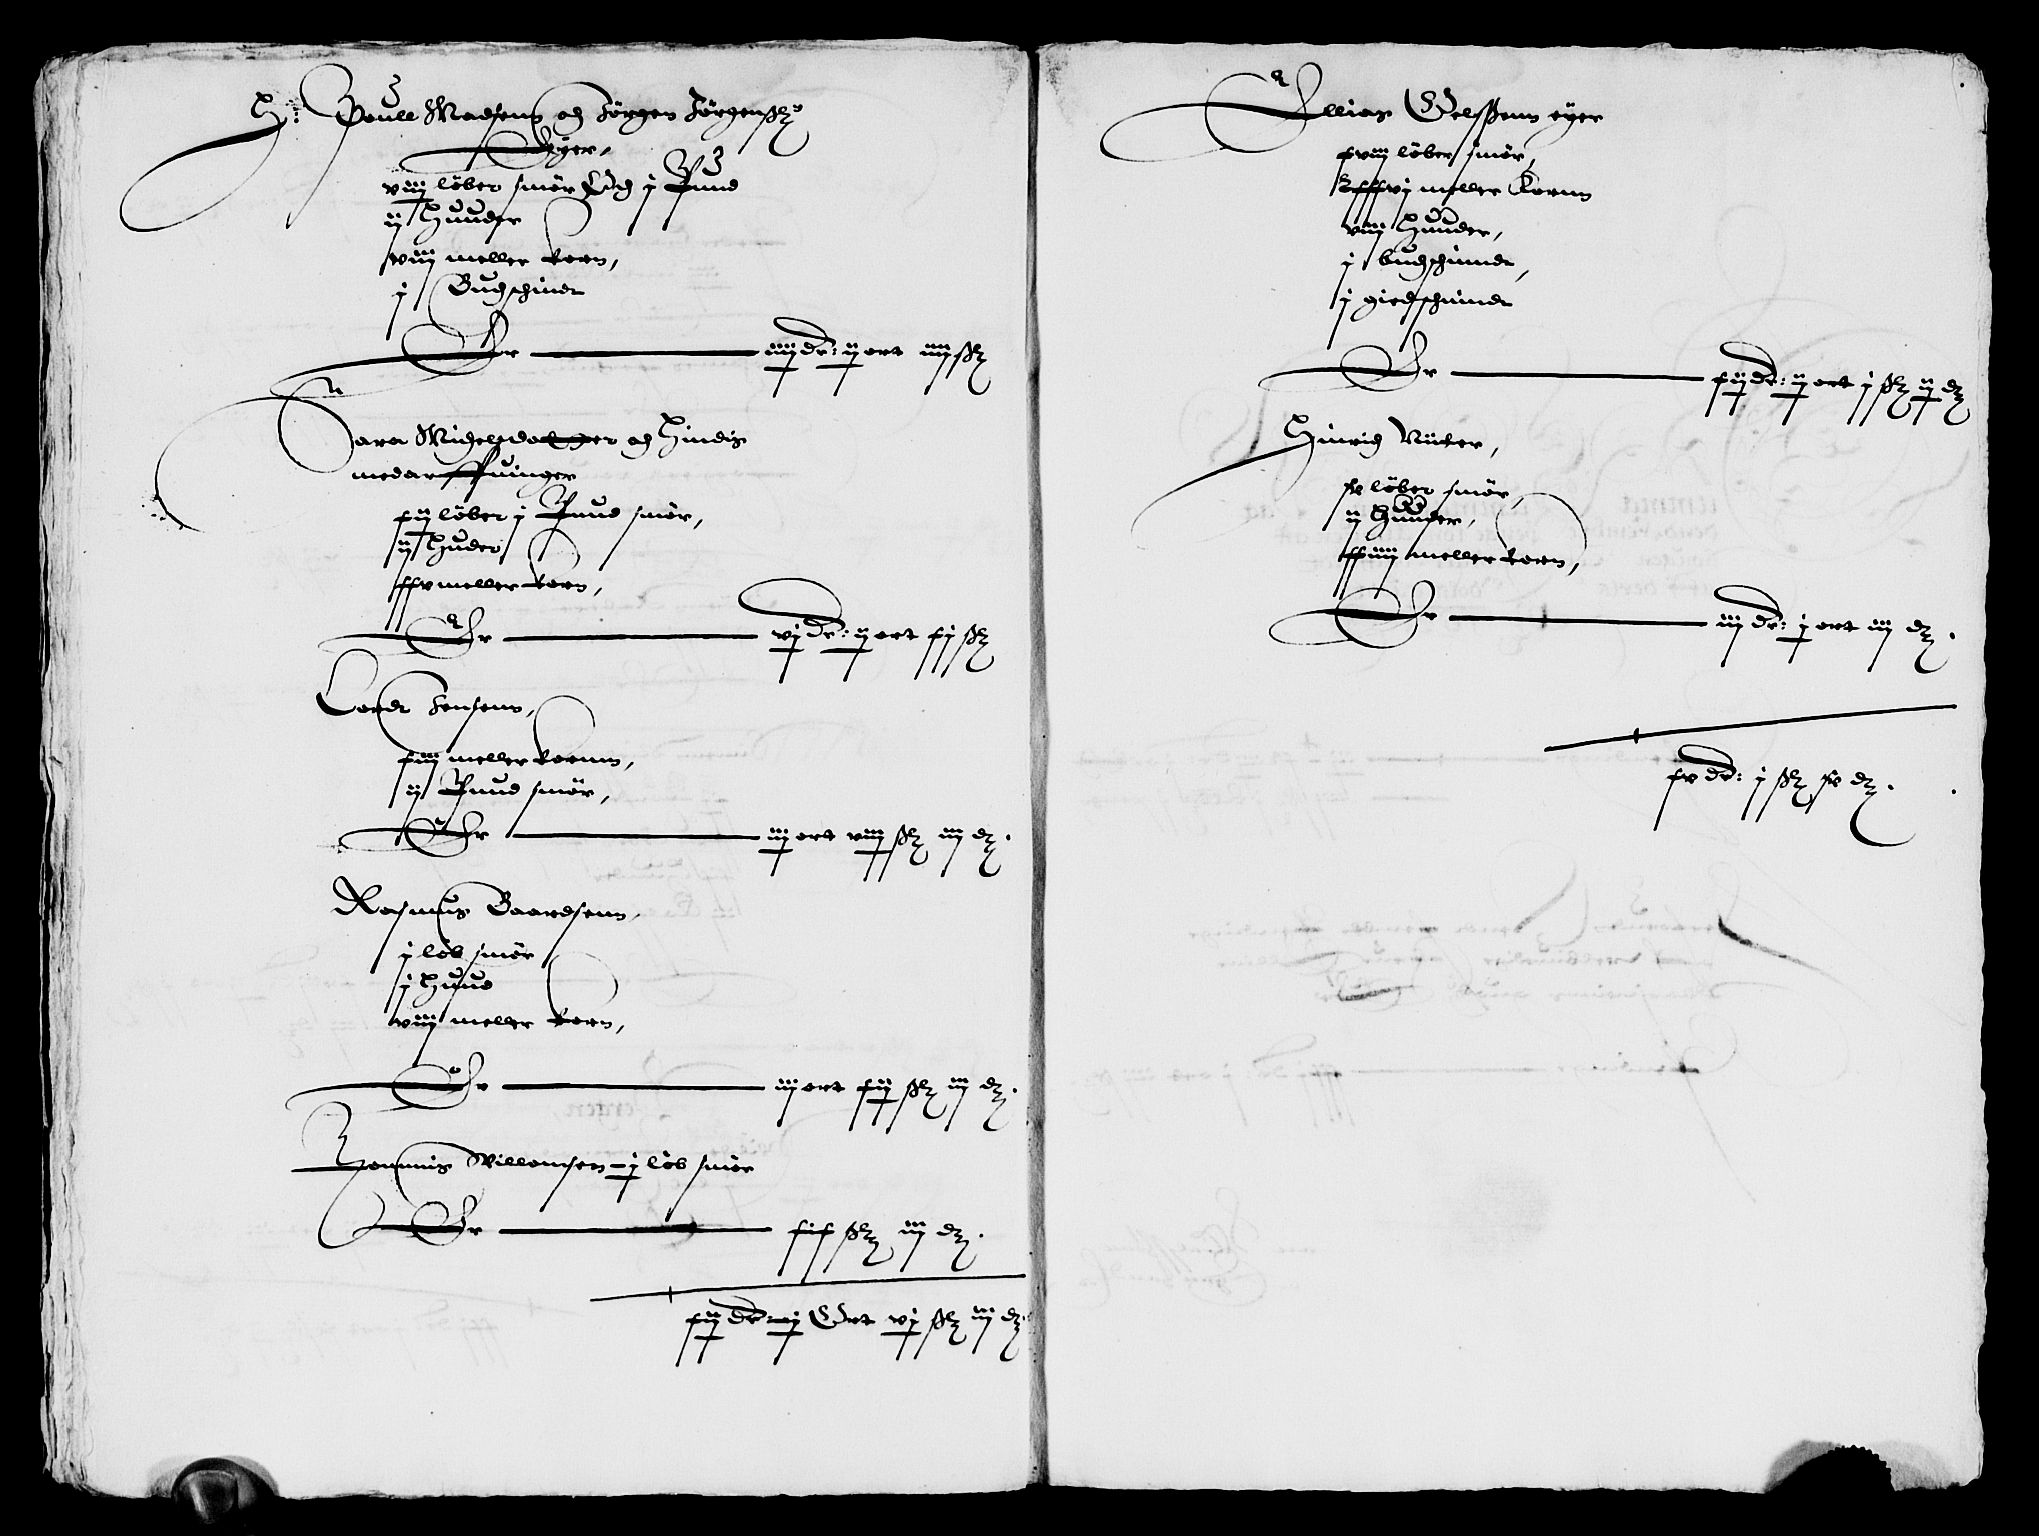 H: Poull Madsens och Jørgen Jørgenß:
Eyer,
viij løber smør Och j Pund
ij Huuder
xviij meller korn,
j Buchschindt
Er iiij dr: ij ort iiij ß
Sara Michelsdatter och Hindis
medarffuinger
xij løber j Pund smør,
ij Huder
xxv meller korn,
Er vj dr: ij ort xj ß
Cordt Jensens,
xiij meller kornn,
ij Pund smør,
Er iij ort viij ß iiij d.
Rasmus Baardsenn,
j løb smør
j Huud
viij meller korn,
Er iij ort xij ß iiij d.
Hemmis Willomsen j løb smør
Er xix ß iiij d.
xij dr: j Ort vj ß iiij d.
Ellias Gelssenn eyer
xviij løber smør,
xxxvj meller Kornn
viij Huuder,
j buchschindt,
j giedschindt
Er xij dr: ij ort j ß ij d
Hinrich
ix løber smør,
ij Huuder,
xxiiij meller korn,
Er iij dr: j ort iiij d.
xv dr: j ß x d.